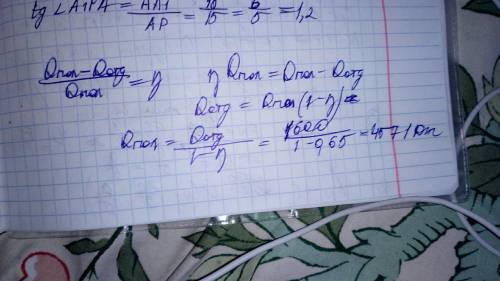 tg ∠A1PA = AA1/AP = 18/15 = 6/5 = 1,2
(Qпол - Qотд)/Qпол = η
η Qпол = Qпол - Qотд
Qотд = Qпол (1 - η)
Qпол = Qотд/(1 - η) = 1600/(1 - 0,65) = 4571 Дж